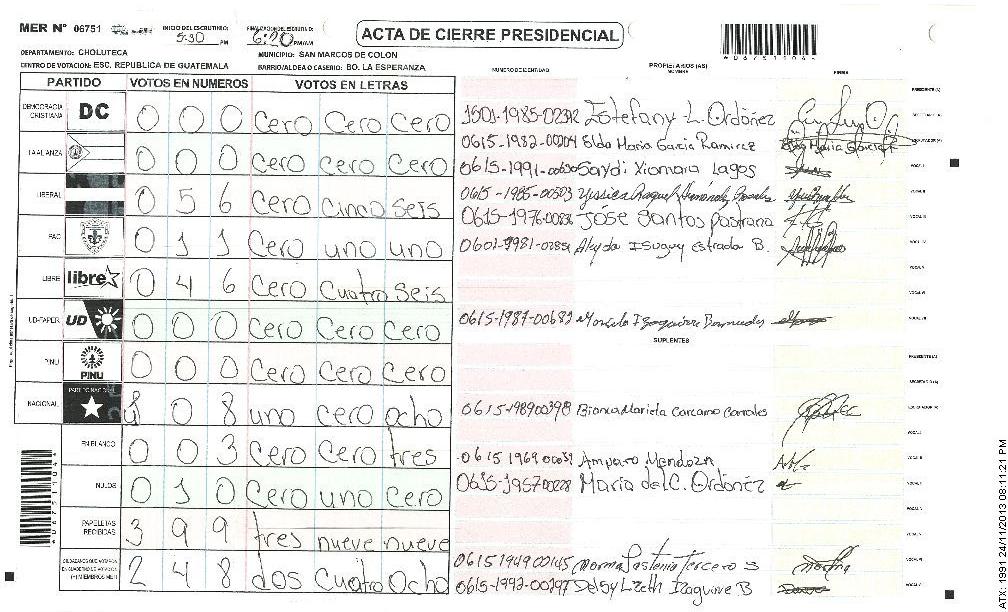 MER N° 06751 INICIO DEL ESCRUTINIO: 5:30 PM FINALIZACION DEL ESCRUTINIO: 6:20 PM/AM ACTA DE CIERRE PRESIDENCIAL
DEPARTAMENTO: CHOLUTECA MUNICIPIO: SAN MARCOS DE COLON
CENTRO DE VOTACION: ESC. REPUBLICA DE GUATEMALA BARRIO/ALDEA O CASERIO: BO. LA ESPERANZA
NUMERO DE IDENTIDAD PROPIETARIOS (AS) NOMBRE FIRMA
PARTIDO VOTOS EN NUMEROS VOTOS EN LETRAS
DEMOCRACIA CRISTIANA DC 0 0 0 Cero Cero Cero
LA ALIANZA 0 0 0 Cero Cero Cero
LIBERAL 0 5 6 Cero Cinco Seis
PAC 0 1 1 Cero uno uno
LIBRE libre 0 4 6 Cero Cuatro Seis
UD-FAPER UD 0 0 0 Cero Cero Cero
PINU PINU 0 0 0 Cero Cero Cero
NACIONAL PARTIDO NACIONAL 0 8 uno cero ocho
EN BLANCO 0 0 3 Cero Cero tres
NULOS 0 1 0 Cero uno Cero
PAPELETAS RECIBIDAS 3 9 9 tres nueve nueve
CIUDADANOS QUE VOTARON 2 4 8 dos Cuatro Ocho
1501-1985-02312 Estefany L. Ordóñez
0615-1982-00204 Elda Maria Garcia Ramirez
0615-1991-00630 Saydi Xiomara Lagos
0615-1985-00503 Yessica Raquel Hernández
0615-1976-00836 Jose Santos Pastrana
0601-1981-02851 Aleyda Isuguy Estrada B.
0615-1987-00682 Marcela Izaguirre Bermudez
SUPLENTES
0615-1989 00398 Bianca Mariela Carcamo Corrales
0615 1969 00039 Amparo Mendoza
0615-1957 00228 Maria del C. Ordóñez
0615 1949 00145 Norma Tercero S
0615-1992-00197 Delsy Lizeth Izaguirre B
ATX: 1991 24/11/2013 08:11:21 PM